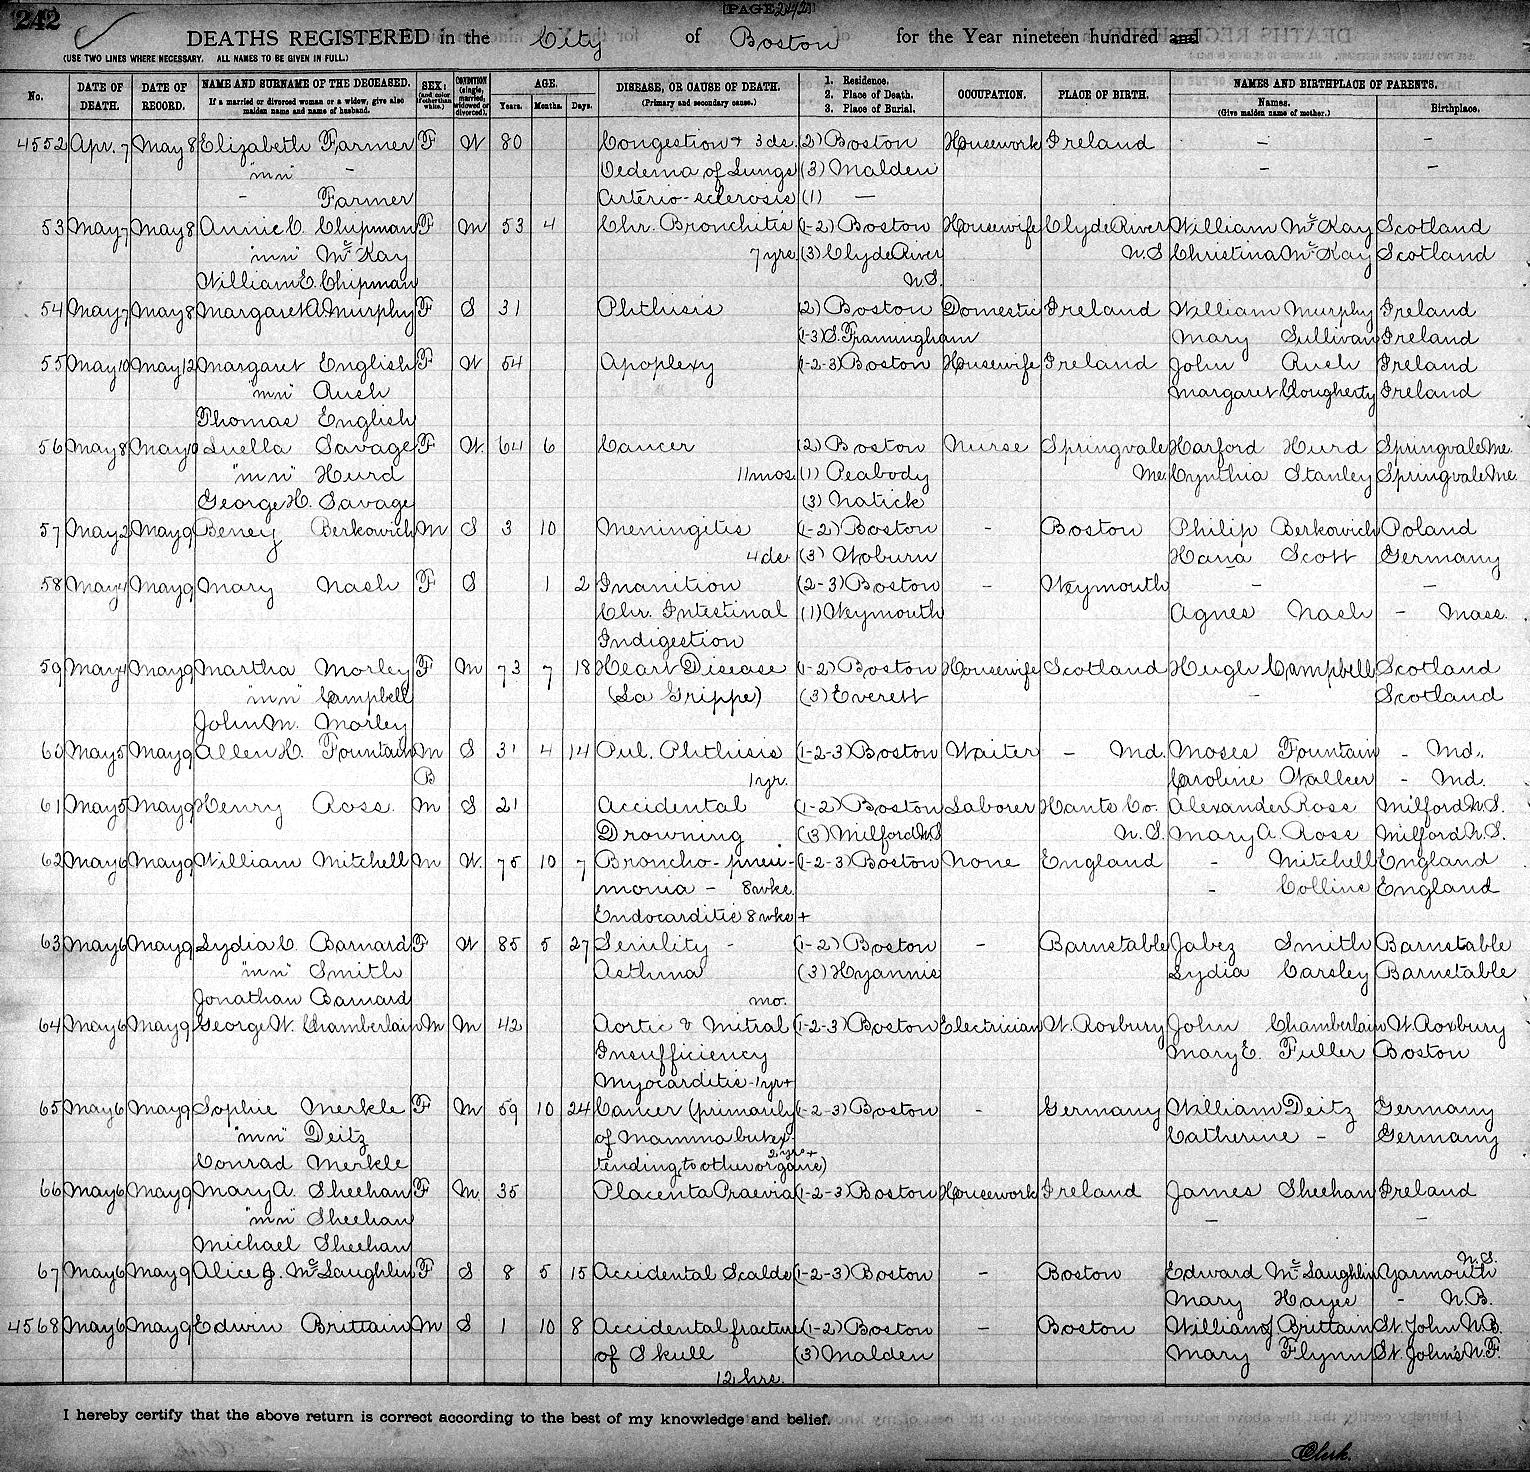 242
[PAGE 242]
DEATHS REGISTERED in the City of Boston for the Year nineteen hundred and
(USE TWO LINES WHERE NECESSARY. ALL NAMES TO BE GIVEN IN FULL.)
No. DATE OF DEATH. DATE OF RECORD. NAME AND SURNAME OF THE DECEASED. If a married or divorced woman or a widow, give also maiden name and name of husband. SEX: (and color if other than white.) CONDITION (single, married, widowed or divorced). AGE. Years. Months. Days. DISEASE, OR CAUSE OF DEATH. (Primary and secondary cause.) 1. Residence. 2. Place of Death. 3. Place of Burial. OCCUPATION. PLACE OF BIRTH. NAMES AND BIRTHPLACE OF PARENTS. Names. (Give maiden name of mother.) Birthplace.
4552 Apr. 7 May 8 Elizabeth Farmer F W 80 Congestion + 3ds. (2) Boston Housework Ireland - -
"mn" - Oedema of Lungs (3) Malden - -
- Farmer Arterio-sclerosis (1) —
53 May 7 May 8 Annie C. Chipman F M 53 4 Chr. Bronchitis (1-2) Boston Housewife Clyde River William McKay Scotland
"mn" McKay 7 yrs (3) Clyde River N.S. Christina McKay Scotland
William E. Chipman N.S.
54 May 7 May 8 Margaret A. Murphy F S 31 Phthisis (2) Boston Domestic Ireland William Murphy Ireland
(1-3) S. Framingham Mary Sullivan Ireland
55 May 10 May 12 Margaret English F W 54 Apoplexy (1-2-3) Boston Housewife Ireland John Rush Ireland
"mn" Rush Margaret Clougherty Ireland
Thomas English
56 May 8 May 10 Luella Savage F W. 64 6 Cancer (2) Boston Nurse Springvale Harford Hurd Springvale Me.
"mn" Hurd 11 mos. (1) Peabody Me. Cynthia Stanley Springvale Me.
George H. Savage (3) Natick
57 May 2 May 9 Beney Berkowich M S 3 10 Meningitis (1-2) Boston - Boston Philip Berkowich Poland
4 ds. (3) Woburn Hana Scott Germany
58 May 4 May 9 Mary Nash F S 1 2 Inanition (2-3) Boston - Weymouth - -
Chr. Intestinal (1) Weymouth Agnes Nash - Mass.
Indigestion
59 May 4 May 9 Martha Morley F M 73 7 18 Heart Disease (1-2) Boston Housewife Scotland Hugh Campbell Scotland
"mn" Campbell (La Grippe) (3) Everett - Scotland
John M. Morley
60 May 5 May 9 Allen H. Fountain M S 31 4 14 Pul. Phthisis (1-2-3) Boston Waiter - Md. Moses Fountain - Md.
B 1 yr. Caroline Walker - Md.
61 May 5 May 9 Henry Rose. M S 21 Accidental (1-2) Boston Laborer Hants Co. Alexander Rose Milford N.S.
Drowning (3) Milford N.S. N.S. Mary A. Rose Milford N.S.
62 May 6 May 9 William Mitchell M W. 75 10 7 Broncho-pneu- (1-2-3) Boston None England - Mitchell England
monia - 8 wks. - Collins England
Endocarditis 8 wks +
63 May 6 May 9 Lydia C. Barnard F W 85 5 27 Senility - (1-2) Boston - Barnstable Jabez Smith Barnstable
"mn" Smith Asthma (3) Hyannis Lydia Carsley Barnstable
Jonathan Barnard mo.
64 May 6 May 9 George W. Chamberlain M M 42 Aortic & Mitral (1-2-3) Boston Electrician W. Roxbury John Chamberlain W. Roxbury
Insufficiency Mary E. Fuller Boston
Myocarditis - 1 yr +
65 May 6 May 9 Sophie Merkle F M 59 10 24 Cancer (primarily (1-2-3) Boston - Germany William Deitz Germany
"mn" Deitz of Mamma but ex- Catherine - Germany
Conrad Merkle tending to other organs) 2 yrs +
66 May 6 May 9 Mary A. Sheehan F M. 35 Placenta Praevia (1-2-3) Boston Housework Ireland James Sheehan Ireland
"mn" Sheehan - -
Michael Sheehan
67 May 6 May 9 Alice J. McLaughlin F S 8 5 15 Accidental Scalds (1-2-3) Boston - Boston Edward McLaughlin Yarmouth N.S.
Mary Hayes - N.B.
4568 May 6 May 9 Edwin Brittain M S 1 10 8 Accidental fracture (1-2) Boston - Boston William J. Brittain St. John N.B.
of Skull (3) Malden Mary Flynn St. John's N.F.
12 hrs.
I hereby certify that the above return is correct according to the best of my knowledge and belief.
Clerk.